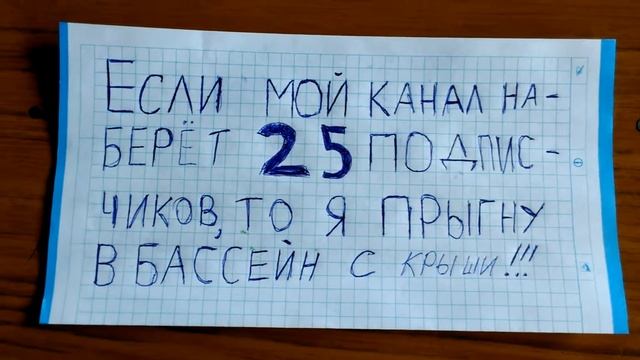 ЕСЛИ МОЙ КАНАЛ НА-
БЕРЁТ 25 ПОДПИС-
ЧИКОВ, ТО Я ПРЫГНУ
В БАССЕЙН С КРЫШИ!!!